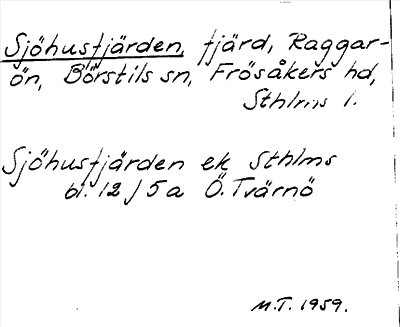 Sjöhusfjärden, fjärd, Raggar-
ön, Börstils sn, Frösåkers hd,
Sthlms l.
Sjöhusfjärden ek Sthlms
bl. 12 J 5 a Ö. Tvärnö
M.T. 1959.